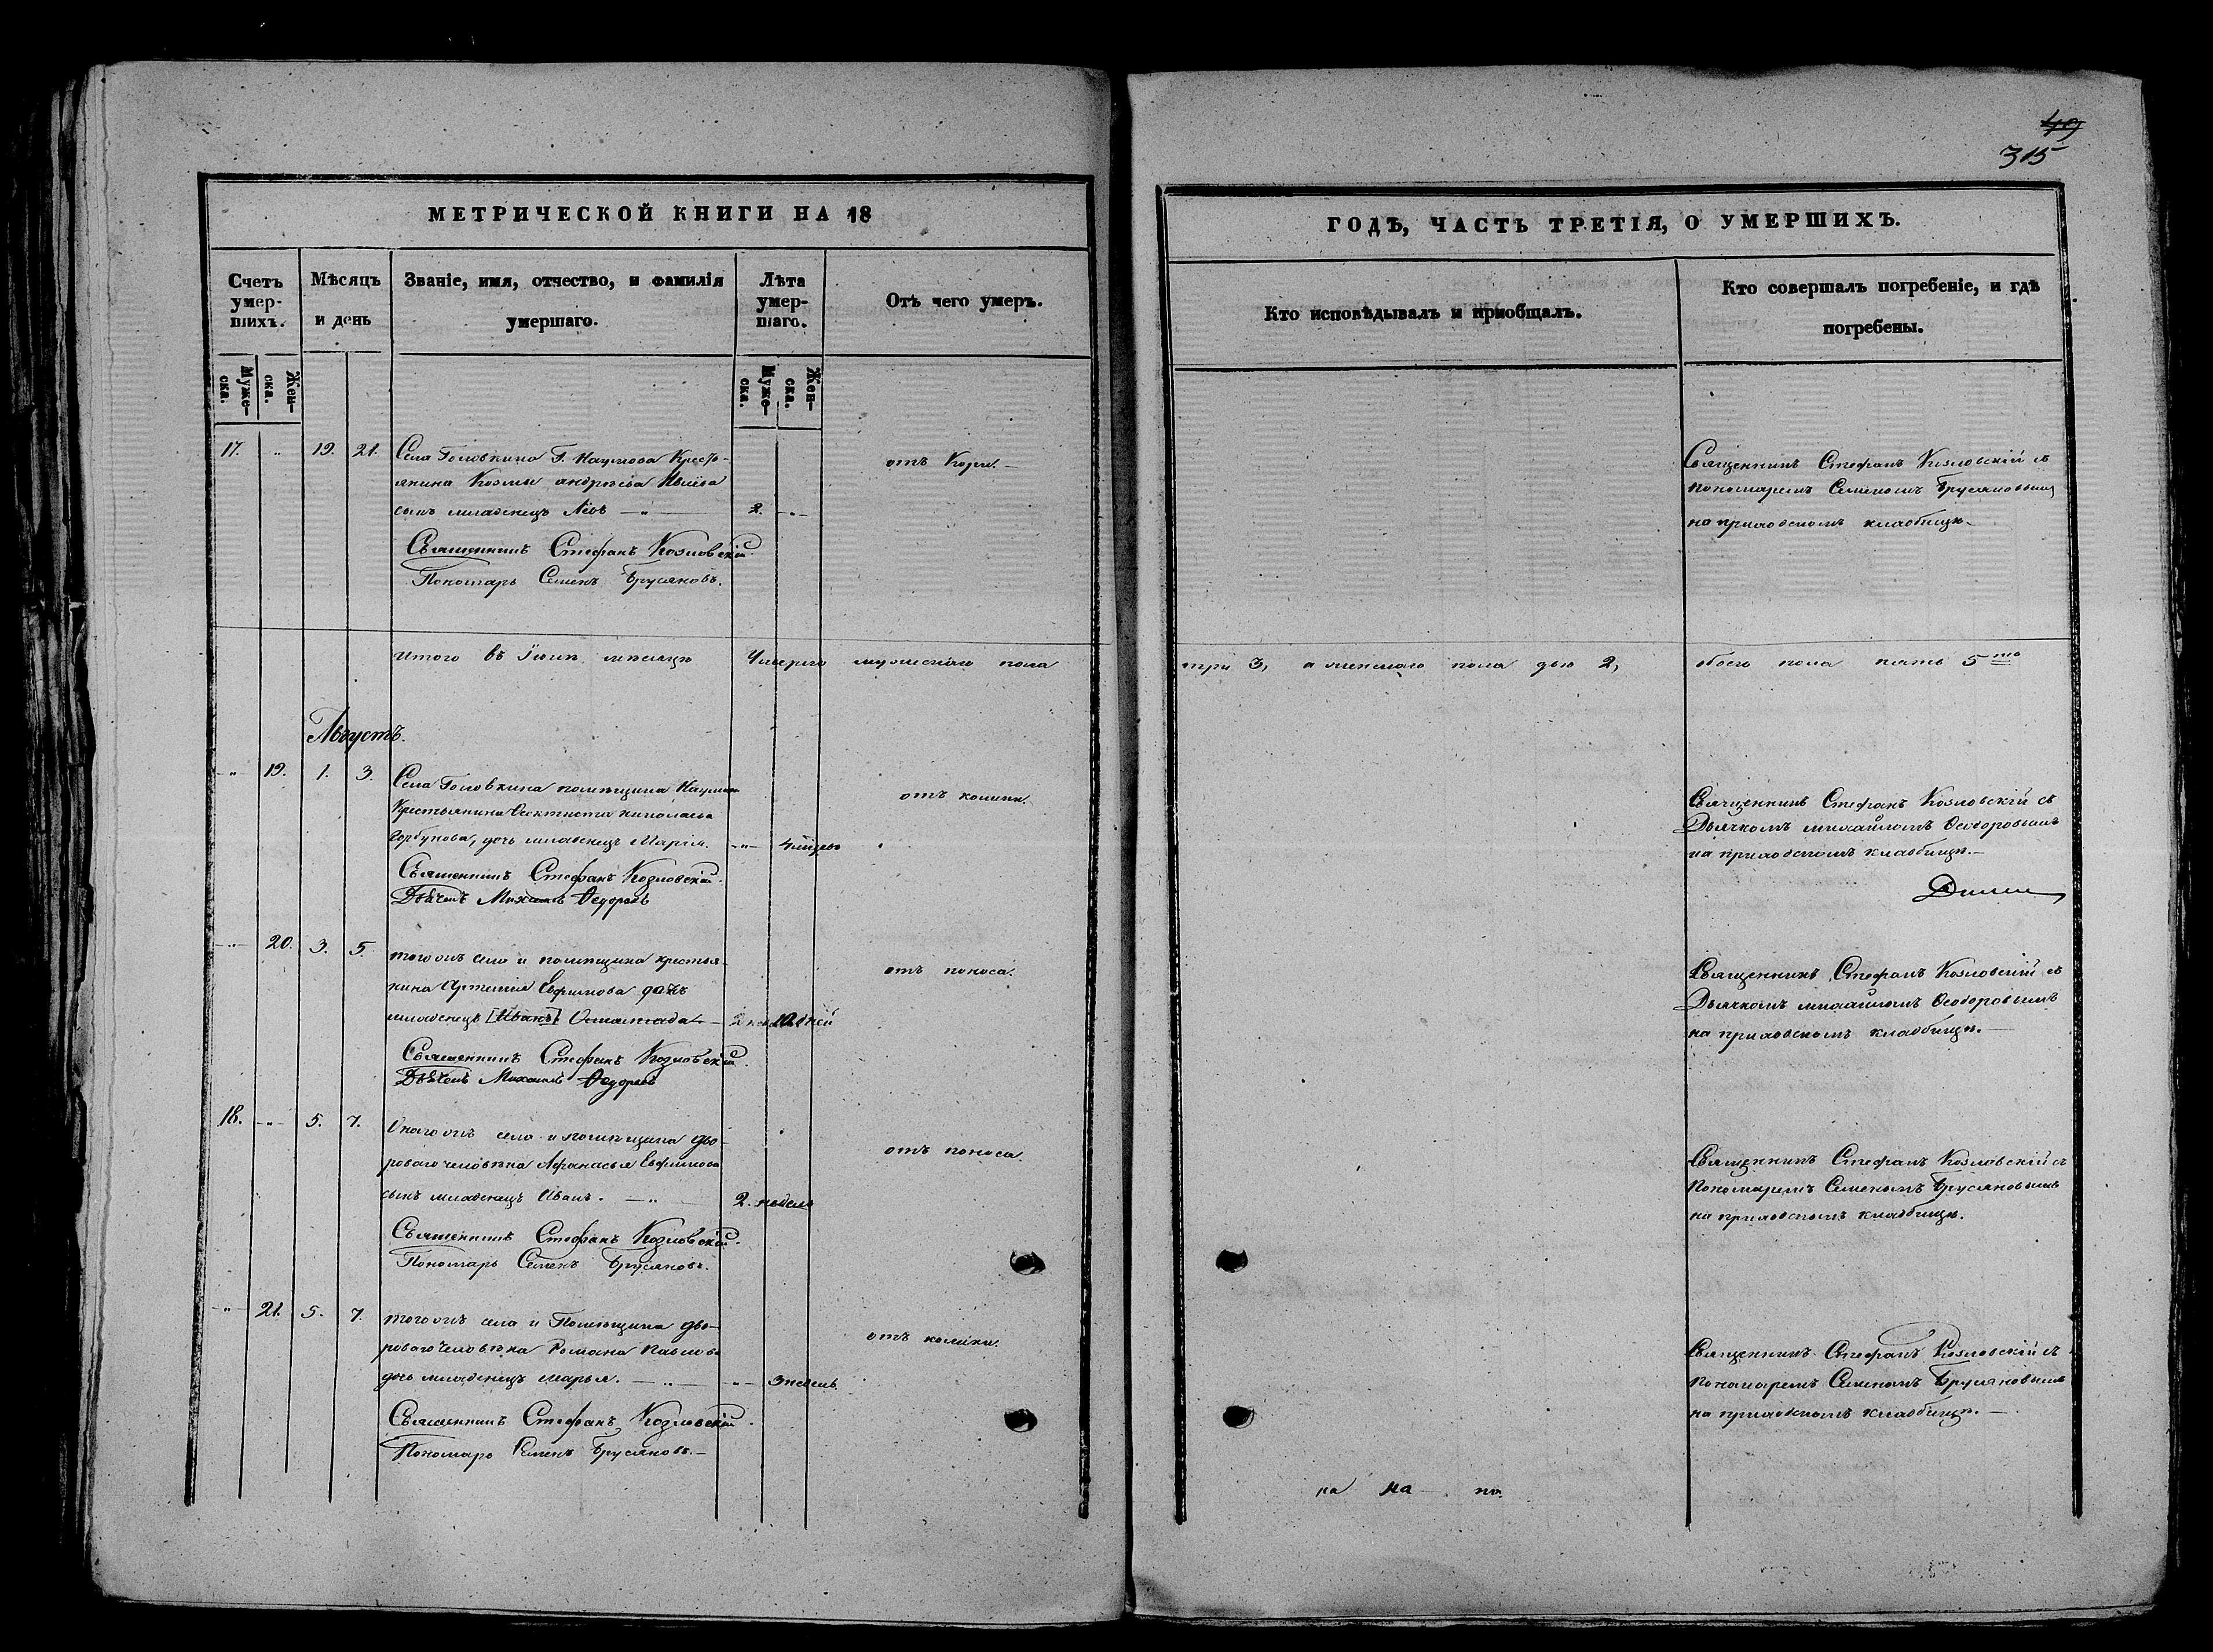 49
315
МЕТРИЧЕСКОЙ КНИГИ НА 18
ГОДЪ, ЧАСТЬ ТРЕТІЯ, О УМЕРШИХЪ.
Счетъ умер-шихъ.
Мѣсяцъ и день
Званіе, имя, отчество, и фамилія умершаго.
Лѣта умер-шаго.
Отъ чего умеръ.
Кто исповѣдывалъ и пріобщалъ.
Кто совершалъ погребеніе, и гдѣ погребены.
Муже-ска.
Жен-ска.
Муже-ска.
Жен-ска.
17. " 19. 21. Села Головкина Г. Наумова Кресть-
янина Козмы Андреева
сынъ младенецъ 2. - " -
отъ Кори. -
Священникъ Стефанъ Козловскій съ
пономаремъ Семеномъ Брусяновымъ
на приходскомъ кладбищѣ.
Священникъ Стефанъ Козловскій.
Пономарь Семенъ Брусяновъ.
Итого въ Іюлѣ мѣсяцѣ Умерло мужескаго пола
три 3, а женскаго пола двѣ 2, обоего пола пять 5
Августъ.
" 19. 1. 3. Села Головкина помѣщика Наумова
Крестьянина Ѳеоктиста Николаева
Горбунова, дочь младенецъ Марія. - " -
отъ колики.
Священникъ Стефанъ Козловскій съ
Дьячкомъ Михаиломъ Ѳеодоровымъ
на приходскомъ кладбищѣ. -
Священникъ Стефанъ Козловскій.
Дьячекъ Михаилъ Ѳедоровъ
" 20. 3. 5. того жъ села и помѣщика крестья-
нина Артемія Евфимова дочь
младенецъ [Иванъ] 10 дней
отъ поноса.
Священникъ Стефанъ Козловскій съ
Дьячкомъ Михаиломъ Ѳеодоровымъ
на приходскомъ кладбищѣ. -
Священникъ Стефанъ Козловскій.
Дьячекъ Михаилъ Ѳедоровъ
18. - " - 5. 7. Онаго жъ села и помѣщика дво-
роваго человѣка Афанасья Евфимова
сынъ младенецъ Иванъ. - " - 2. недель
отъ поноса.
Священникъ Стефанъ Козловскій съ
Пономаремъ Семеномъ Брусяновымъ
на приходскомъ кладбищѣ.
Священникъ Стефанъ Козловскій.
Пономарь Семенъ Брусяновъ.
" 21. 5. 7. того жъ села и Помѣщика дво-
роваго человѣка Романа Павлова
дочь младенецъ Марья. - " - " 3 недель.
отъ колики.
Священникъ Стефанъ Козловскій съ
Пономаремъ Семеномъ Брусяновымъ
на приходскомъ кладбищѣ. -
Священникъ Стефанъ Козловскій.
Пономарь Семенъ Брусяновъ. -
на на по